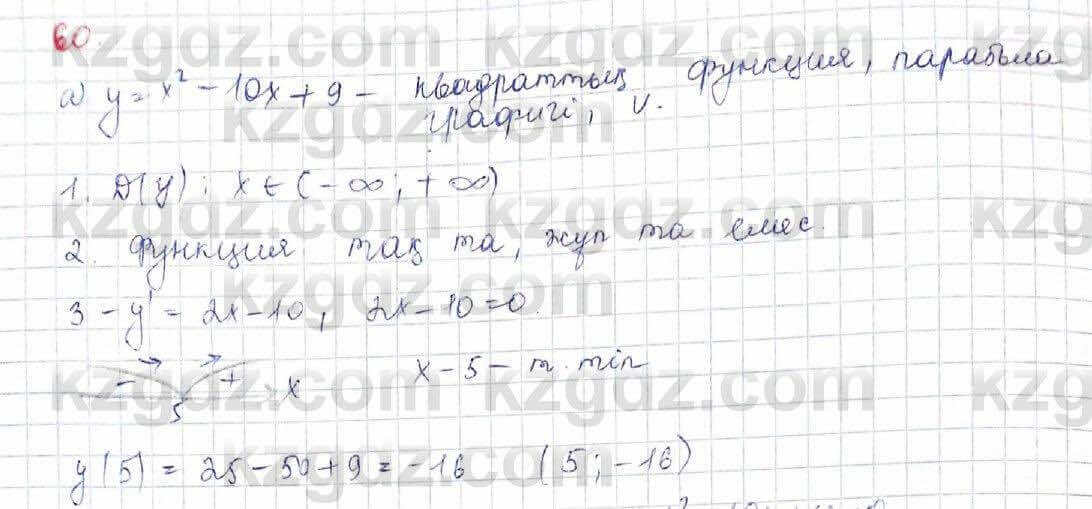 60.
а) y = x² - 10x + 9 - квадраттық функция, парабола
графигі, v.
1. D(y): x ∈ (-∞; +∞)
2. Функция тақ та, жұп та емес.
3 - y' = 2x - 10, 2x - 10 = 0.
- + x x - 5 - т. min
5
y(5) = 25 - 50 + 9 = -16 (5; -16)
kzgdz.com